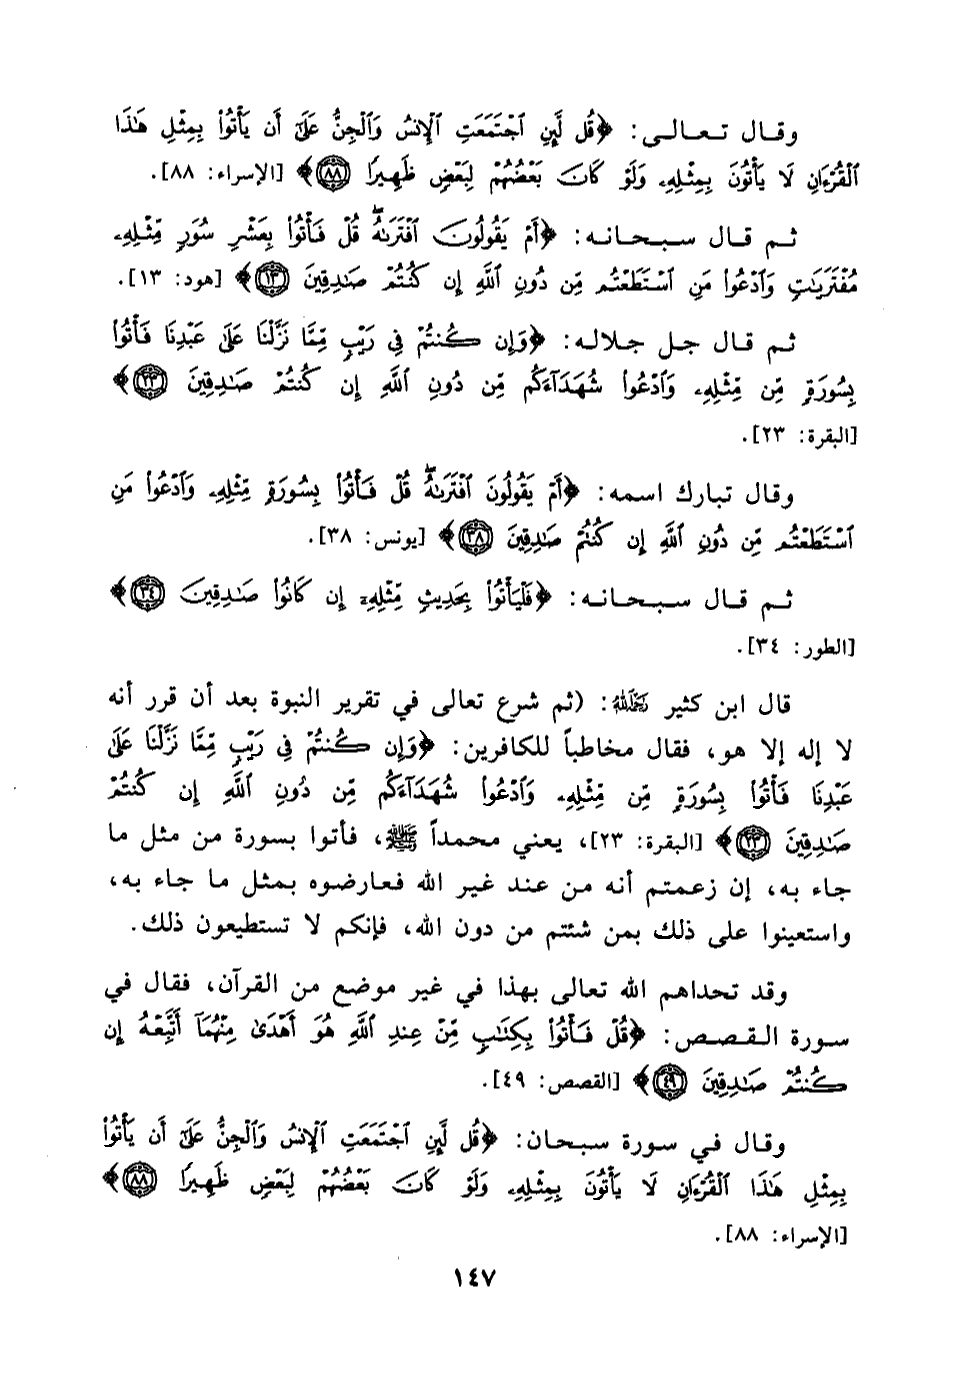 وقال تعالى: ﴿قُل لَّئِنِ ٱجْتَمَعَتِ ٱلْإِنسُ وَٱلْجِنُّ عَلَىٰٓ أَن يَأْتُوا۟ بِمِثْلِ هَٰذَا
ٱلْقُرْءَانِ لَا يَأْتُونَ بِمِثْلِهِۦ وَلَوْ كَانَ بَعْضُهُمْ لِبَعْضٍ ظَهِيرًا ﴿٨٨﴾﴾ [الإسراء: ٨٨].
ثم قال سبحانه: ﴿أَمْ يَقُولُونَ ٱفْتَرَىٰهُۖ قُلْ فَأْتُوا۟ بِعَشْرِ سُوَرٍ مِّثْلِهِۦ
مُفْتَرَيَٰتٍ وَٱدْعُوا۟ مَنِ ٱسْتَطَعْتُم مِّن دُونِ ٱللَّهِ إِن كُنتُمْ صَٰدِقِينَ ﴿١٣﴾﴾ [هود: ١٣].
ثم قال جل جلاله: ﴿وَإِن كُنتُمْ فِى رَيْبٍ مِّمَّا نَزَّلْنَا عَلَىٰ عَبْدِنَا فَأْتُوا۟
بِسُورَةٍ مِّن مِّثْلِهِۦ وَٱدْعُوا۟ شُهَدَآءَكُم مِّن دُونِ ٱللَّهِ إِن كُنتُمْ صَٰدِقِينَ ﴿٢٣﴾﴾
[البقرة: ٢٣].
وقال تبارك اسمه: ﴿أَمْ يَقُولُونَ ٱفْتَرَىٰهُۖ قُلْ فَأْتُوا۟ بِسُورَةٍ مِّثْلِهِۦ وَٱدْعُوا۟ مَنِ
ٱسْتَطَعْتُم مِّن دُونِ ٱللَّهِ إِن كُنتُمْ صَٰدِقِينَ ﴿٣٨﴾﴾ [يونس: ٣٨].
ثم قال سبحانه: ﴿فَلْيَأْتُوا۟ بِحَدِيثٍ مِّثْلِهِۦٓ إِن كَانُوا۟ صَٰدِقِينَ ﴿٣٤﴾﴾
[الطور: ٣٤].
قال ابن كثير رحمه الله: (ثم شرع تعالى في تقرير النبوة بعد أن قرر أنه
لا إله إلا هو، فقال مخاطباً للكافرين: ﴿وَإِن كُنتُمْ فِى رَيْبٍ مِّمَّا نَزَّلْنَا عَلَىٰ
عَبْدِنَا فَأْتُوا۟ بِسُورَةٍ مِّن مِّثْلِهِۦ وَٱدْعُوا۟ شُهَدَآءَكُم مِّن دُونِ ٱللَّهِ إِن كُنتُمْ
صَٰدِقِينَ ﴿٢٣﴾﴾ [البقرة: ٢٣]، يعني محمداً ﷺ، فأتوا بسورة من مثل ما
جاء به، إن زعمتم أنه من عند غير الله فعارضوه بمثل ما جاء به،
واستعينوا على ذلك بمن شئتم من دون الله، فإنكم لا تستطيعون ذلك.
وقد تحداهم الله تعالى بهذا في غير موضع من القرآن، فقال في
سورة القصص: ﴿قُلْ فَأْتُوا۟ بِكِتَٰبٍ مِّنْ عِندِ ٱللَّهِ هُوَ أَهْدَىٰ مِنْهُمَآ أَتَّبِعْهُ إِن
كُنتُمْ صَٰدِقِينَ ﴿٤٩﴾﴾ [القصص: ٤٩].
وقال في سورة سبحان: ﴿قُل لَّئِنِ ٱجْتَمَعَتِ ٱلْإِنسُ وَٱلْجِنُّ عَلَىٰٓ أَن يَأْتُوا۟
بِمِثْلِ هَٰذَا ٱلْقُرْءَانِ لَا يَأْتُونَ بِمِثْلِهِۦ وَلَوْ كَانَ بَعْضُهُمْ لِبَعْضٍ ظَهِيرًا ﴿٨٨﴾﴾
[الإسراء: ٨٨].
١٤٧